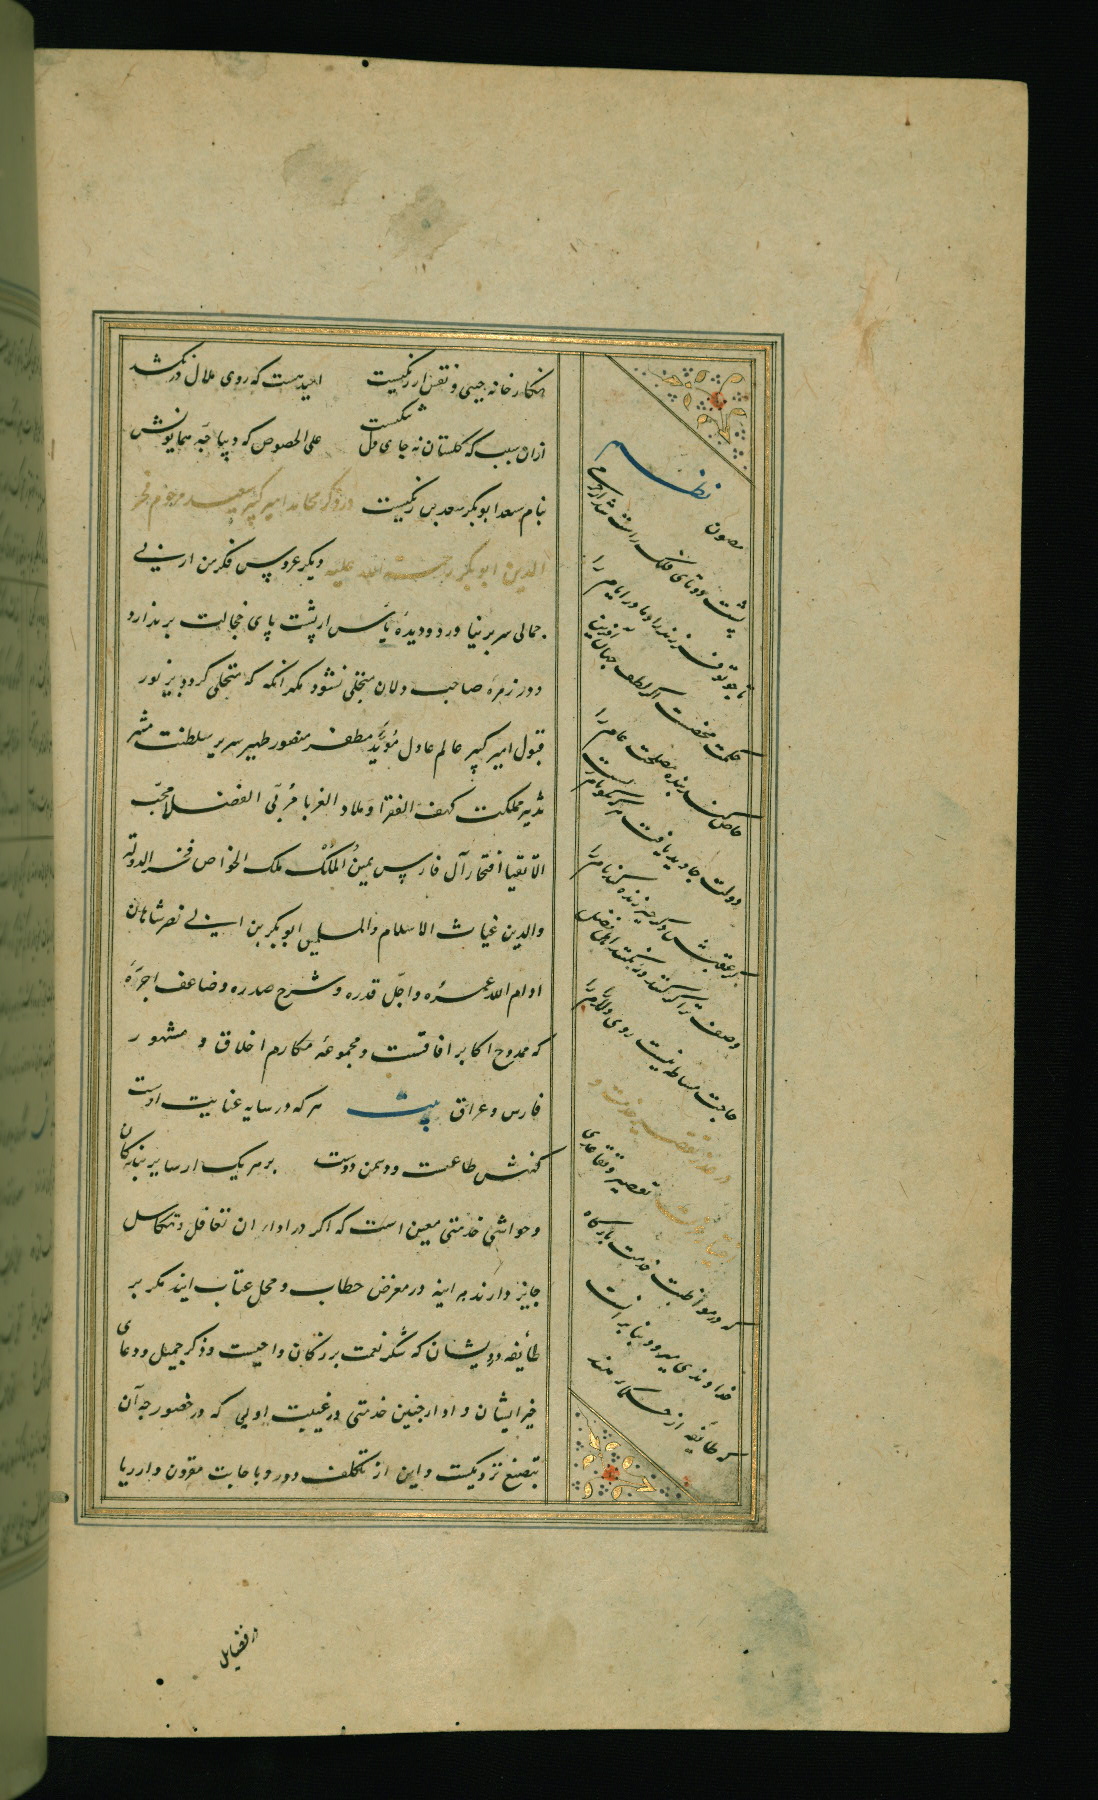 نکارخانه چینی و نقش ارژنکیست امید هست که روی ملال درنکشد
ازان سبب که کلستان نه جای دل تنکیست علی الخصوص که دیباچه همایونش
بنام سعد ابوبکر سعد بن زنکیست در ذکر محامد امیر کبیر سعید مرحوم فخر
الدین ابوبکر رحمة الله علیه دیکر عروس فکر من از بی
جمالی سر برنیاورد و دیده یأس از پشت پای خجالت برندارد
و در زمره صاحب دلان متجلی نشود مکر انکه که متحلی کردد بزیور
قبول امیر کبیر عالم عادل مؤید مظفر منصور ظهیر سریر سلطنت مشیر
تدبیر مملکت کهف الفقرا و ملاذ الغربا مربی الفضلا محب
الاتقیا افتخار آل فارس یمین الملک ملک الخواص فخر الدولة
والدین غیاث الاسلام والمسلمین ابوبکر بن ابی نصر شاهان
ادام الله عمره واجل قدره وشرح صدره وضاعف اجره
که ممدوح اکابر افاقست و مجموعه مکارم اخلاق و مشهور
فارس و عراق بیت هر که در سایه عنایت اوست
کنهش طاعت و دشمن دوست بر هر یک از سایر بندکان
و حواشی خدمتی معین است که اکر در ادای ان تغافل و تکاسل
جایز دارند هراینه در معرض خطاب و محل عتاب ایند مکر بر
طایفه درویشان که شکر نعمت بزرکان واجبست و ذکر جمیل و دعای
خیر ایشان و ادا چنین خدمتی در غیبت اولی که در حضور چه آن
بتصنع نزدیکست و این از تکلف دور و باجابت مقرون و از ریا
مصون
نظم
پشت دوتای فلک راست شد از خرمی
تا چو تو فرزند زاد مادر ایام را
حکمت محضست اکر لطف جهان آفرین
خاص کند بنده مصلحت عام را
دولت جاوید یافت هر که نکونام زیست
کز عقبش ذکر خیر زنده کند نام را
وصف ترا کر کنند ور نکنند اهل فضل
حاجت مشاطه نیست روی دلارام را
در عذر تقصیر خدمت و
تقصیر و تقاعدی
که در مواظبت خدمت بارکاه
خداوندی میرود بنا برانست
که طایفه از حکماء هند
در فضایل